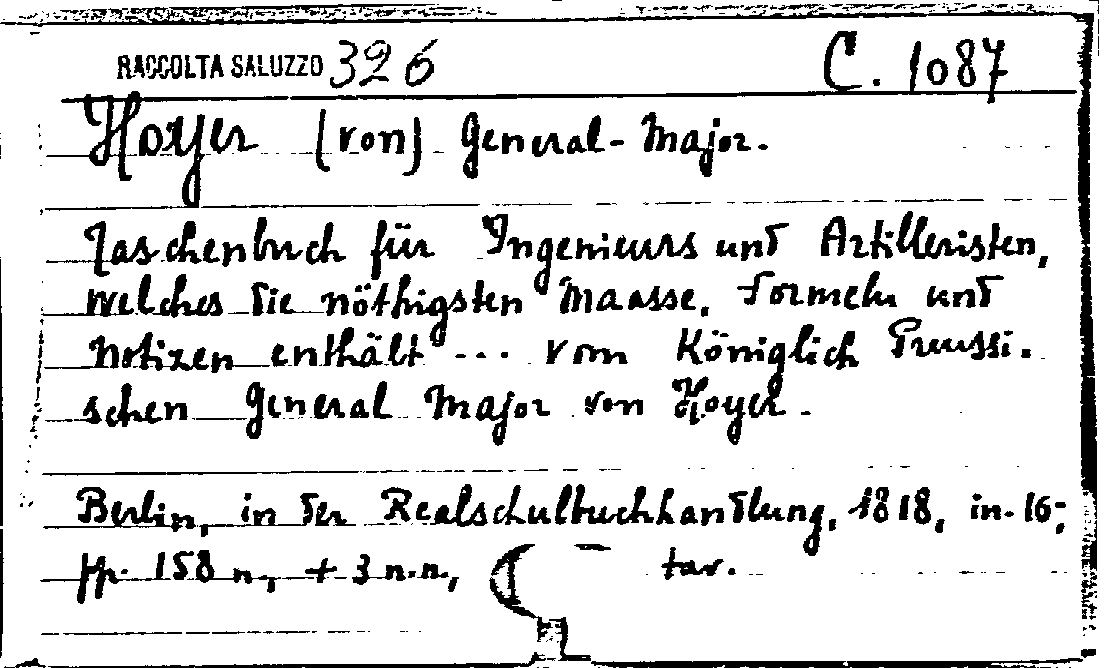 RACCOLTA SALUZZO 326 C. 1087
Hoyer (von) General-Major.
Taschenbuch für Ingenieurs und Artilleristen,
welches die nöthigsten Maasse, Formeln und
Notizen enthält ... vom Königlich Preussi.
schen General Major von Hoyer.
Berlin, in der Realschulbuchhandlung, 1818, in-16°,
pp. 158 n., + 3 n.n., tav.